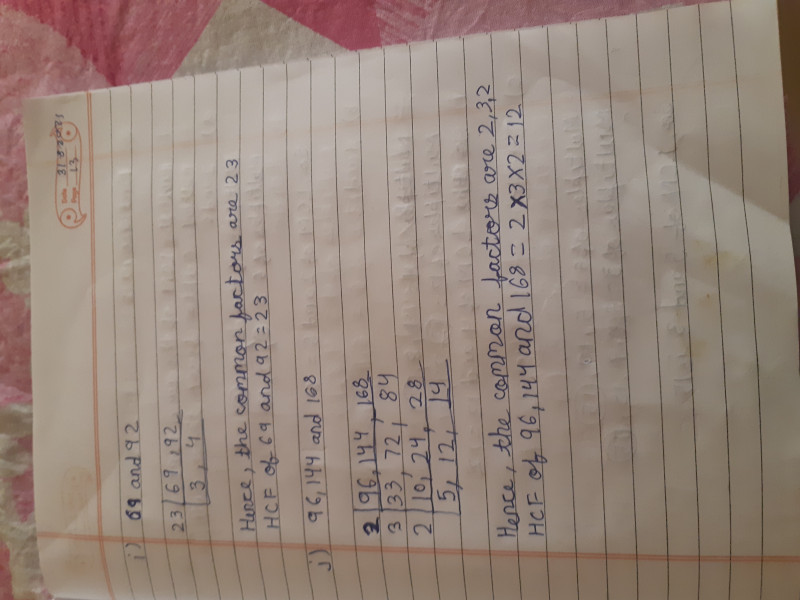 Date 31.07.2023
Page 13
i) 69 and 92
23 | 69, 92
3, 4
Hence, the common factors are 23
HCF of 69 and 92 = 23
j) 96, 144 and 168
2 | 96, 144, 168
3 | 33, 72, 84
2 | 10, 24, 28
5, 12, 14
Hence, the common factors are 2,3,2
HCF of 96, 144 and 168 = 2×3×2 = 12